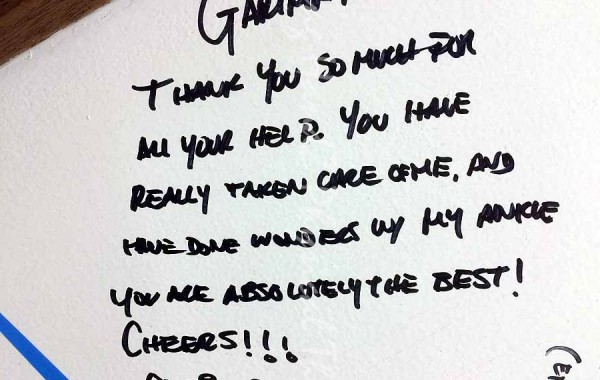 THANK YOU SO MUCH FOR
ALL YOUR HELP. YOU HAVE
REALLY TAKEN CARE OF ME, AND
HAVE DONE WONDERS W/ MY ANKLE
YOU ARE ABSOLUTELY THE BEST!
CHEERS!!!